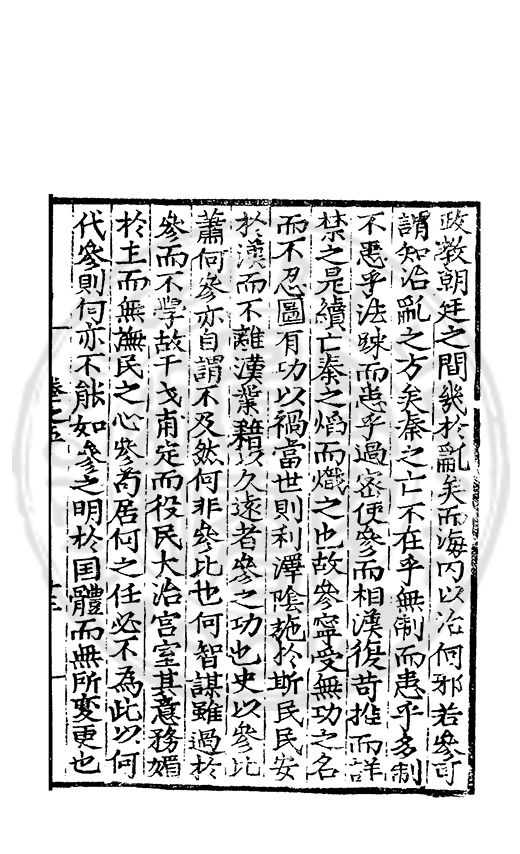 政教朝廷之間幾於亂矣而海内以治何邪若參可
謂知治亂之方矣秦之亡不在乎無制而患乎多制
不患乎法踈而患乎過密使參而相漢復苛摧而詳
禁之是續亡秦之焰而熾之也故參寧受無功之名
而不忍圖有功以禍當世則利澤陰施於斯民民安
於漢而不離漢業藉以久遠者參之功也史以參比
蕭何參亦自謂不及然何非參比也何智謀雖過於
參而不學故干戈甫定而役民大治宫室其意務媚
於主而無憮民之心參苟居何之任必不為此以何
代參則何亦不能如參之明於国體而無所変更也
卷之五
十三